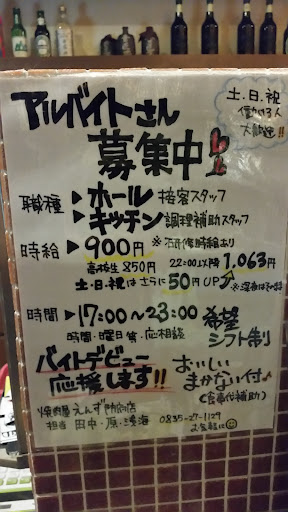 アルバイトさん
募集中!!
土・日・祝
働ける人
大歓迎!!
職種▶ホール 接客スタッフ
▶キッチン 調理補助スタッフ
時給▶900円 ※研修時給あり
高校生850円 22:00以降1,063円
土・日・祝はさらに50円UP
時間▶17:00〜23:00 希望
シフト制
時間・曜日等・応相談
バイトデビュー
応援します!!
おいしい
まかない付♪
(食事代補助)
焼肉屋えんず防府店
担当 田中・原・
0835-27-1129
お気軽に